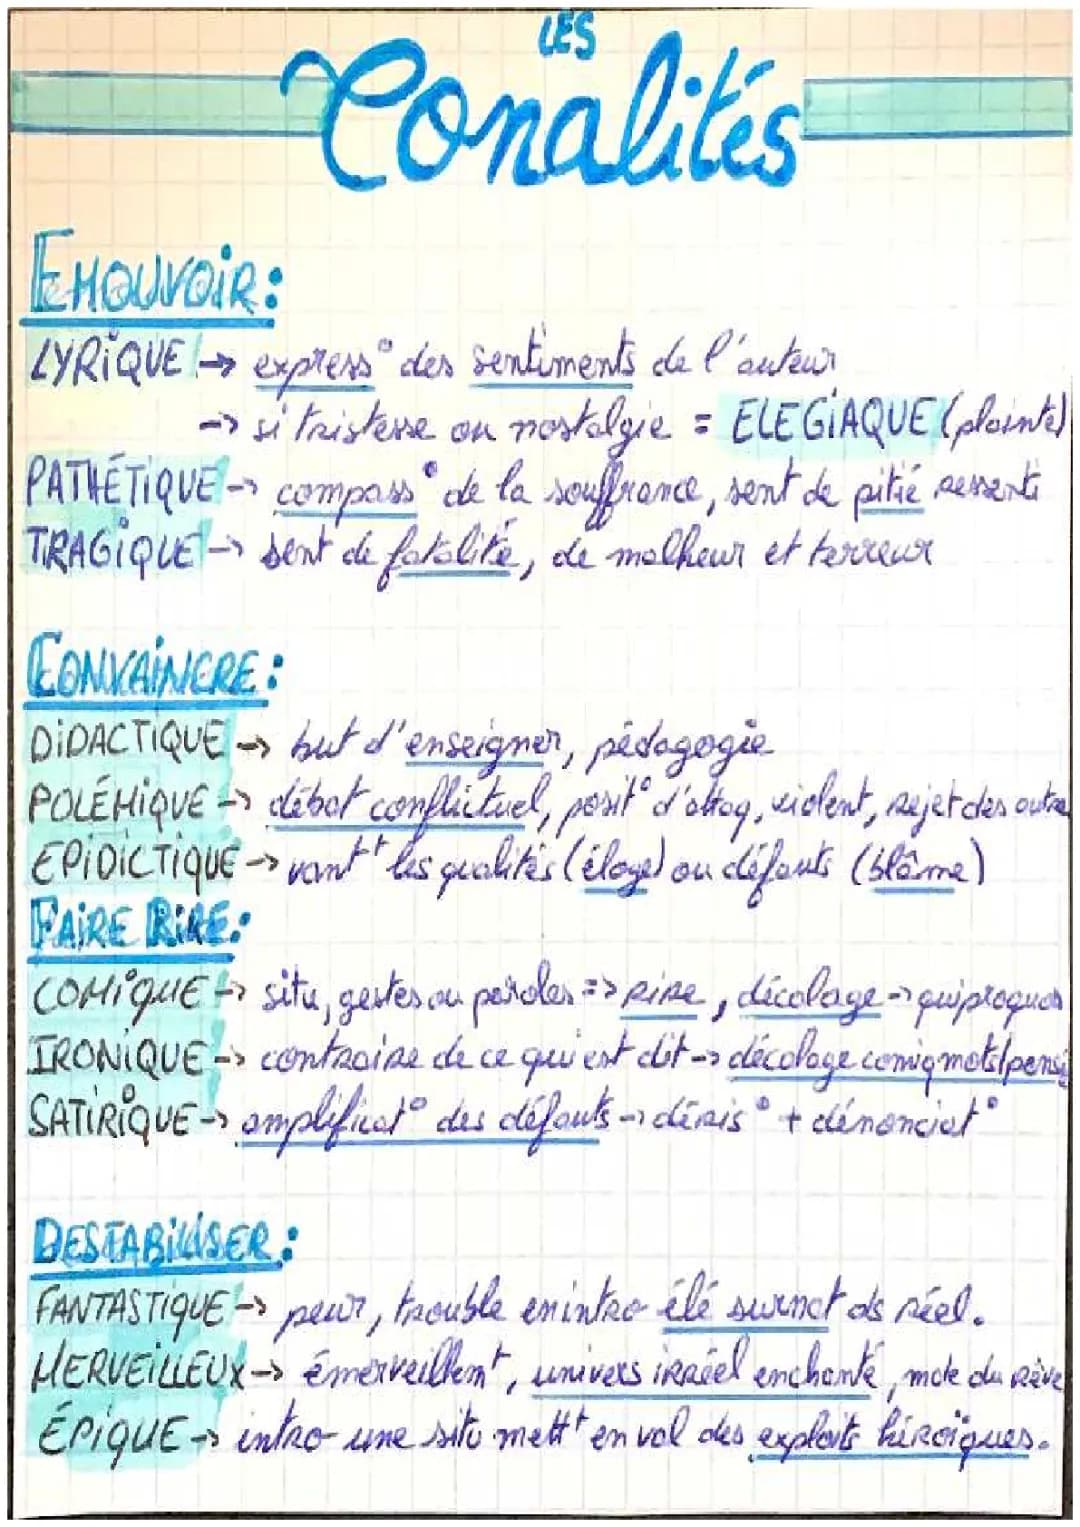 LES
Tonalités
EMOUVOIR :
LYRIQUE → express° des sentiments de l'auteur
→ si tristesse ou nostalgie = ELEGIAQUE (plainte)
PATHÉTIQUE → compass° de la souffrance, sent de pitié ressenti
TRAGIQUE → sent de fatalité, de malheur et terreur
CONVAINCRE :
DIDACTIQUE → but d'enseigner, pédagogie
POLÉMIQUE → débat conflictuel, posit° d'attaq, violent, rejet des autre
EPIDICTIQUE → vantt les qualités (éloge) ou défauts (blâme)
FAIRE RIRE :
COMIQUE → situ, gestes ou paroles => rire, décalage → quiproquos
IRONIQUE → contraire de ce qui est dit → décalage comiq mots/pensé
SATIRIQUE → amplificat° des défauts → déris° + dénonciat°
DESTABILISER :
FANTASTIQUE → peur, trouble en intro élé surnat ds réel.
MERVEILLEUX → émerveillemt, univers irréel enchanté, mde du rêve
ÉPIQUE → intro une situ mettt en val des exploits héroïques.